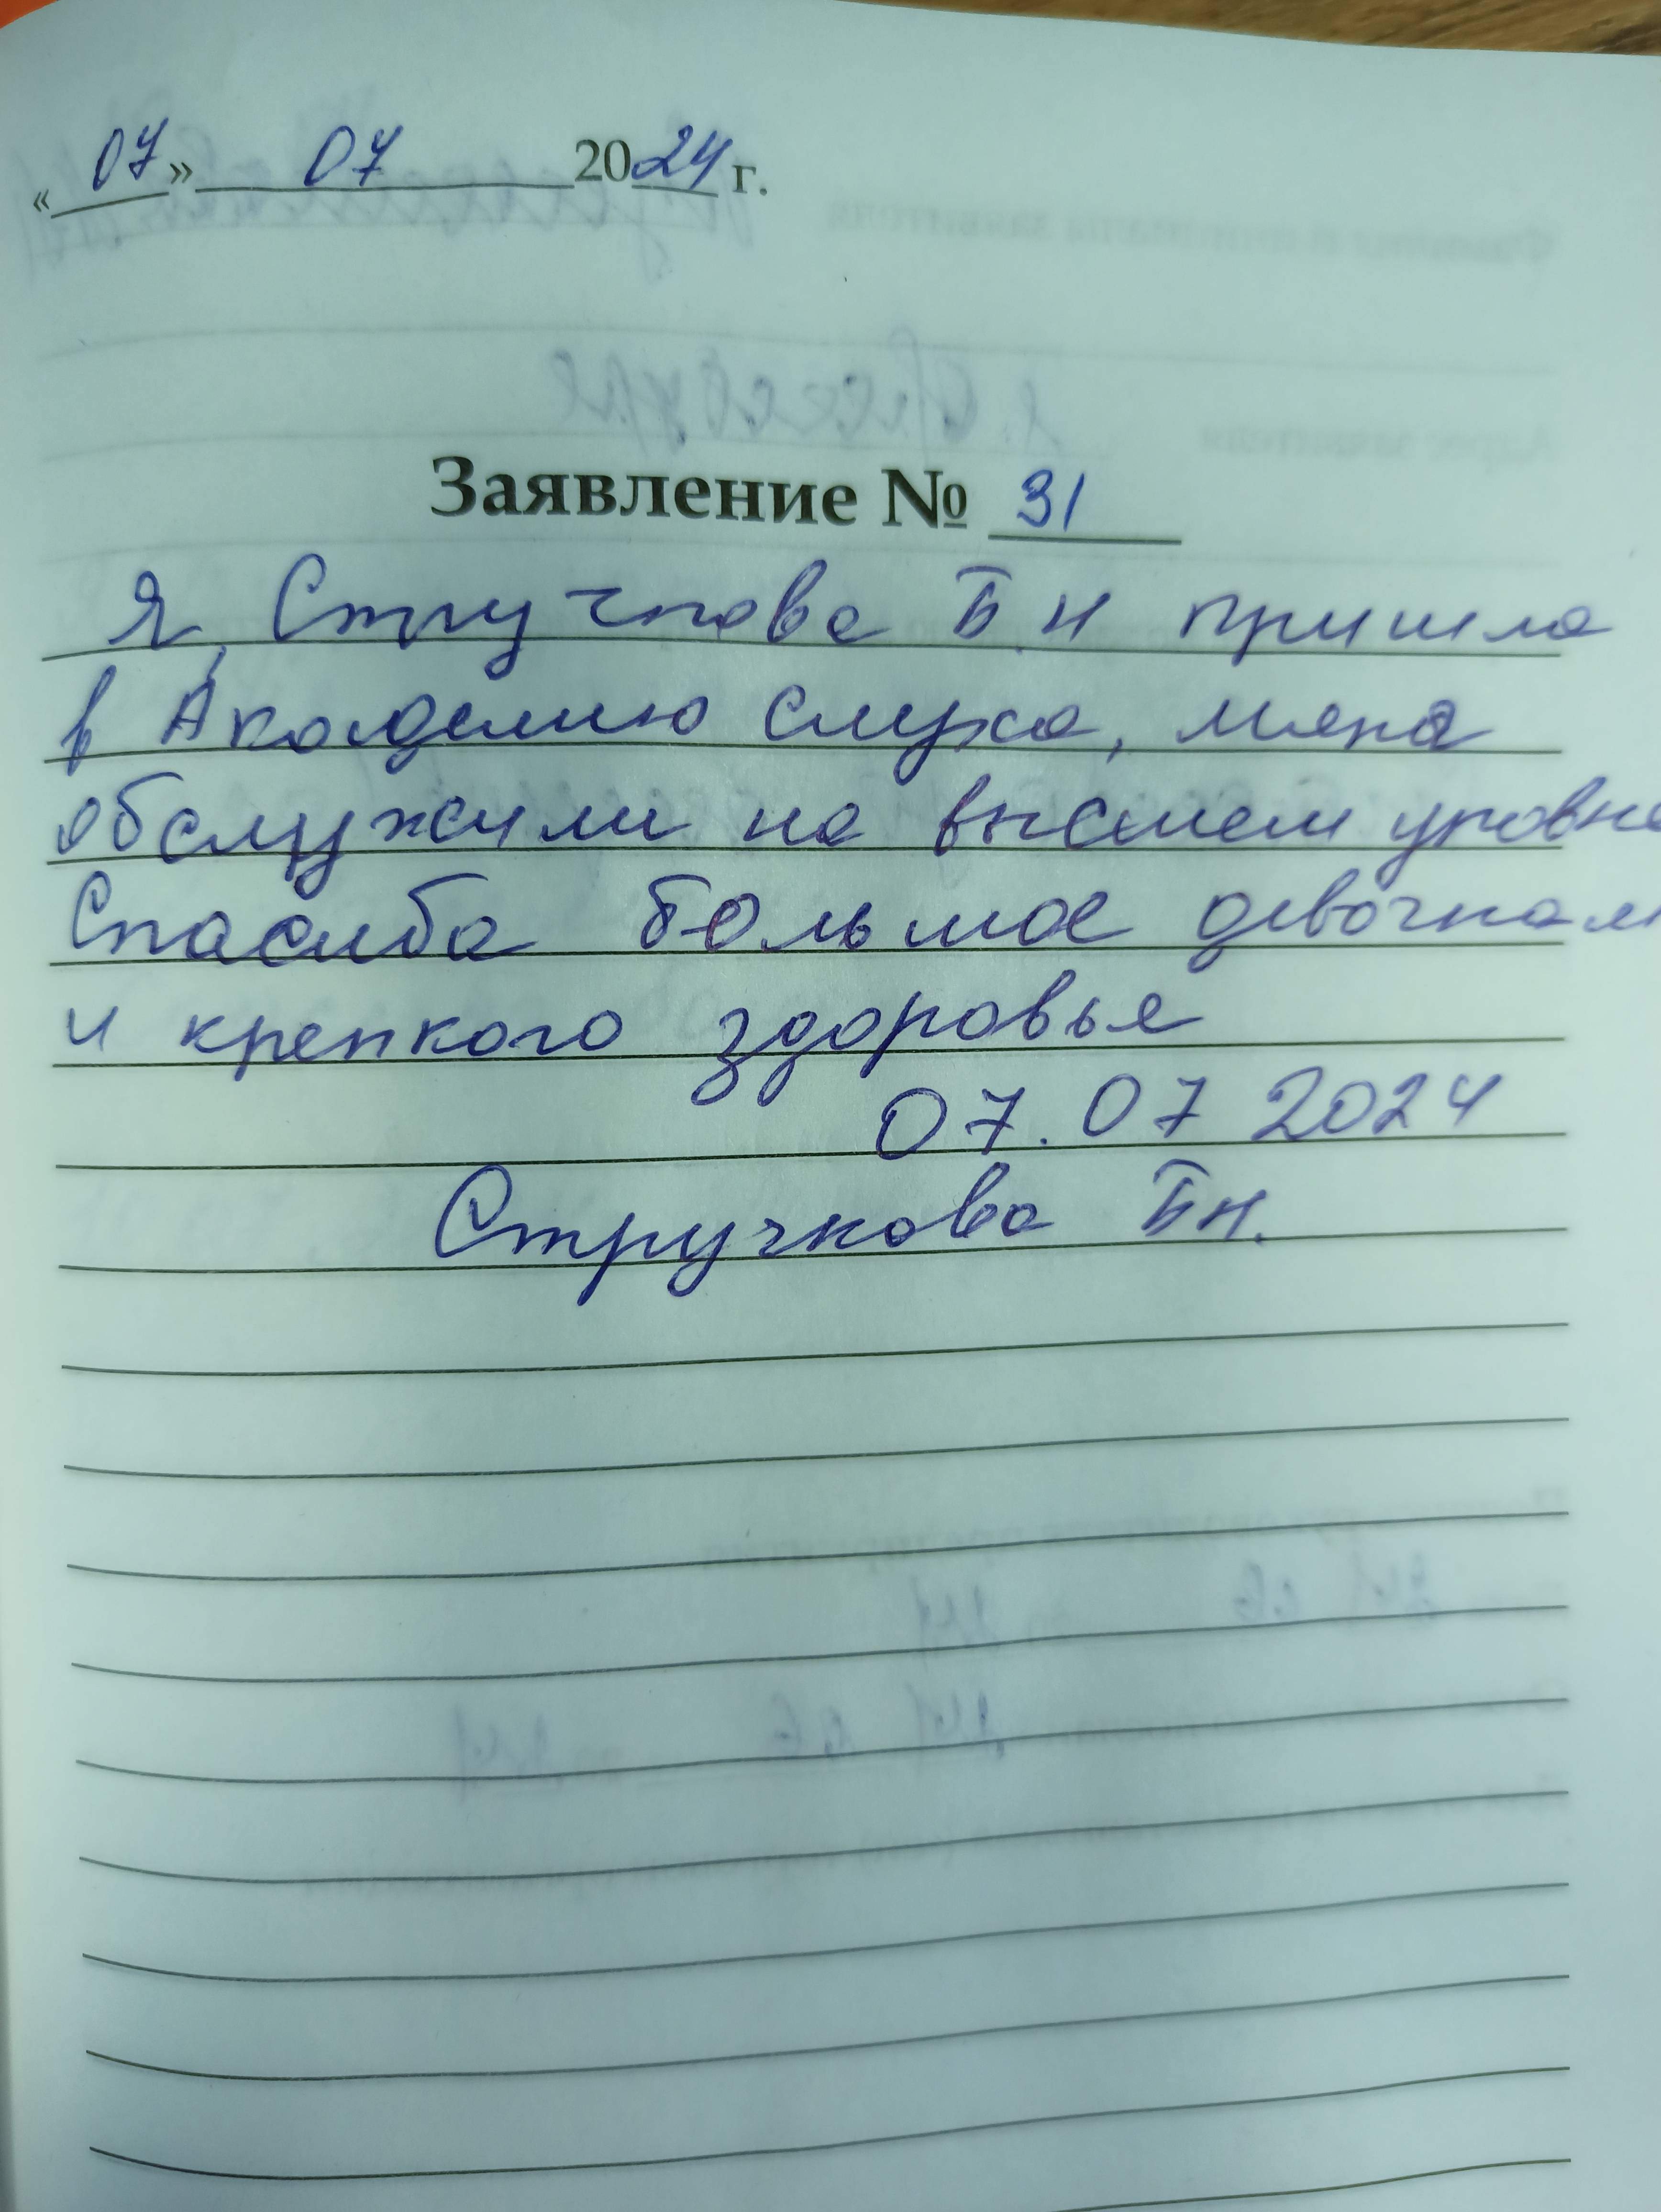 « 07 » 07 2024 г.
Заявление № 31
Я, Стручкова Б.Н пришла
в Академию слуха, мяна
обслужили на высшем уровне
Спасиба большое девочкам
и крепкого здоровья
07.07 2024
Стручкова Б Н.